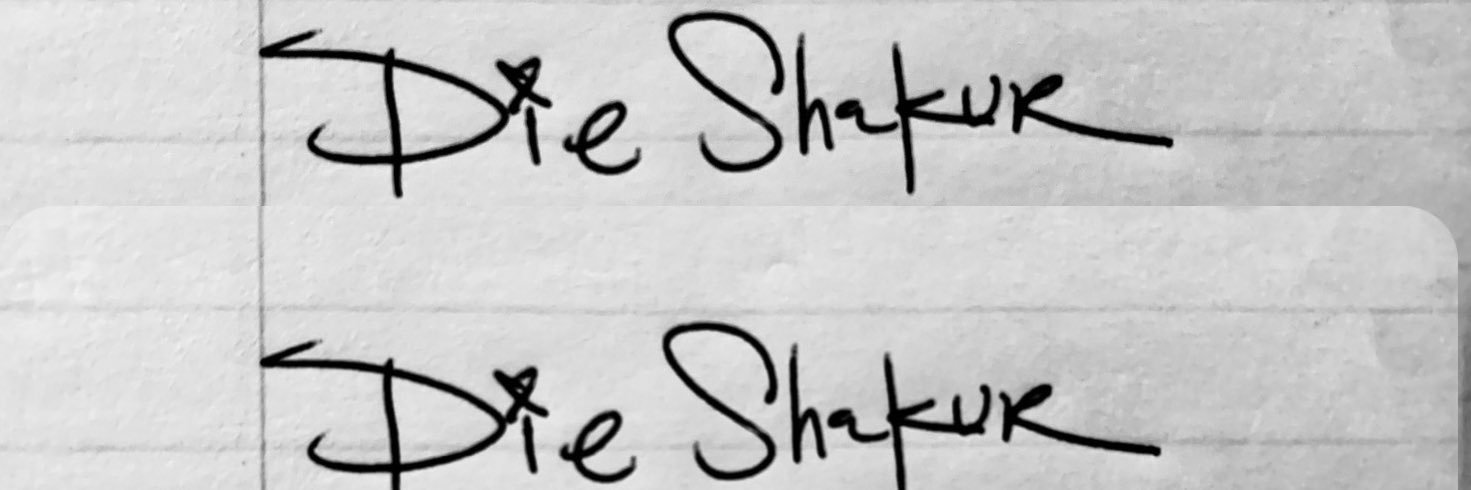 Die Shakur
Die Shakur